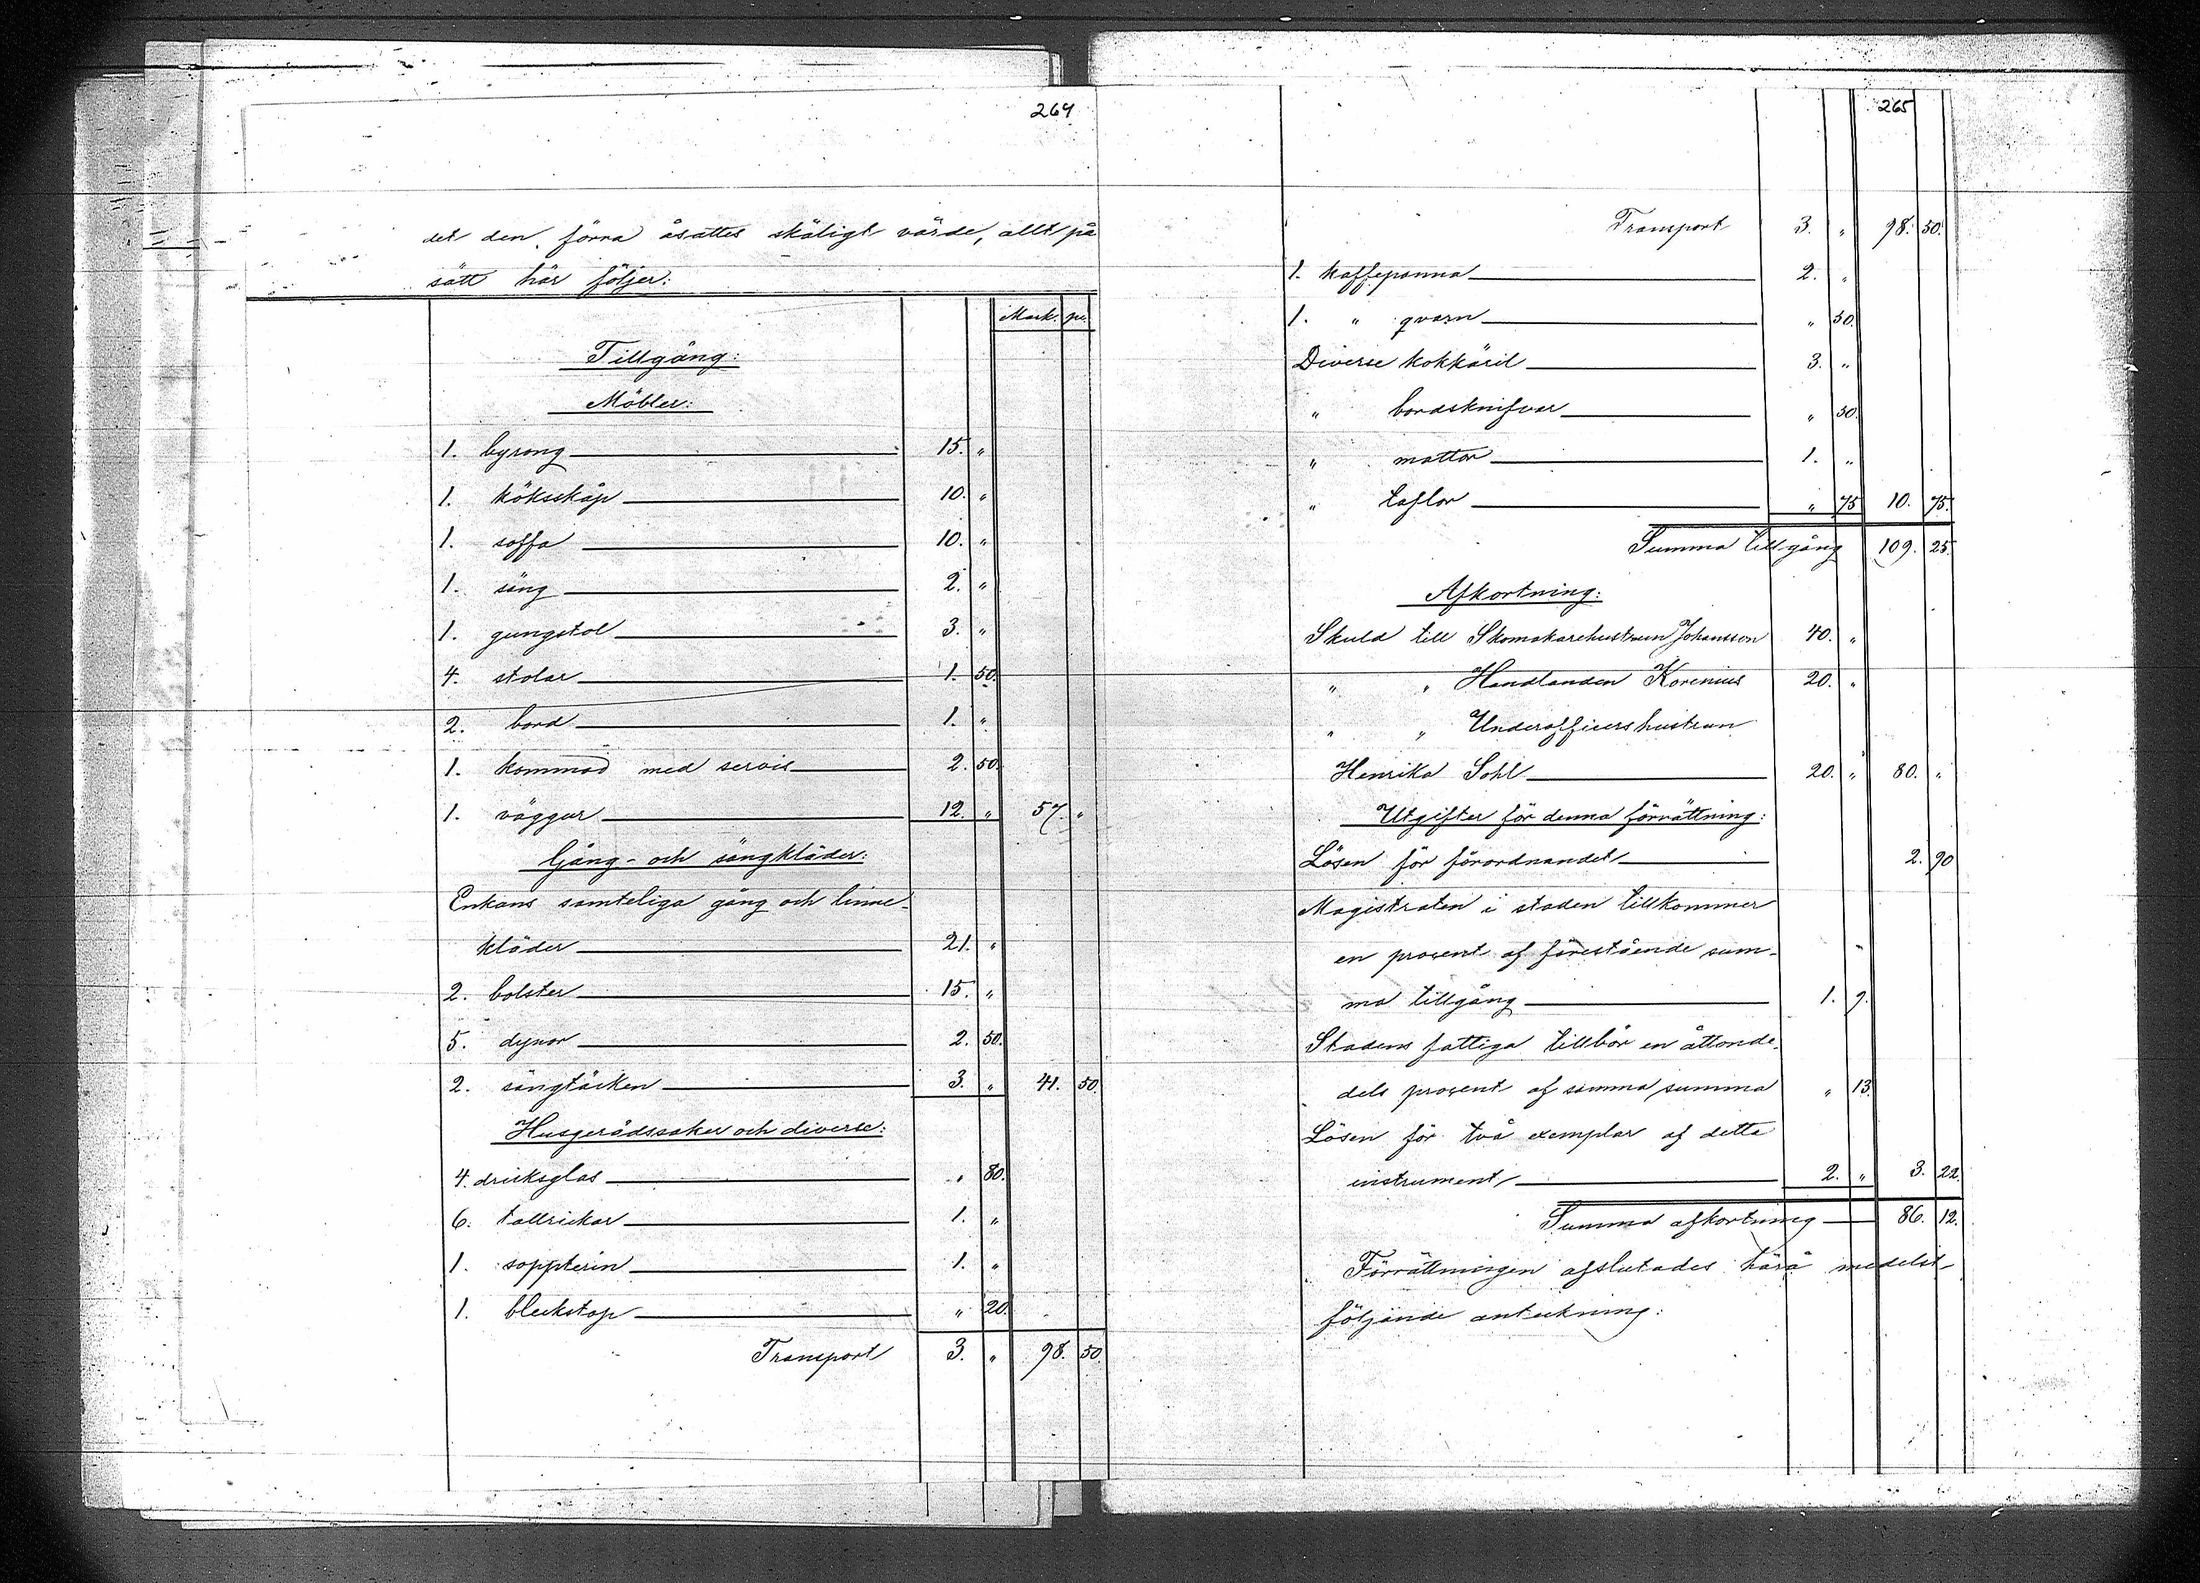 264
det den förra åsattes skäligt värde, allt på
sätt här följer:
Mark. pi.
Tillgång:
Möbler:
1. byrong 15. "
1. köksskåp 10. "
1. soffa 10. "
1. säng 2. "
1. gungstol 3. "
4. stolar 1. 50.
2. bord 1. "
1. kommod med servis 2. 50.
1. väggur 12. " 57. "
Gång- och sängkläder:
Enkans samteliga gång och linne-
kläder 21. "
2. bolster 15. "
5. dynor 2. 50.
2. sängtäcken 3. " 41. 50.
Husgerådssaker och diverse:
4. dricksglas " 80.
6. tallrickar 1. "
1. soppterin 1. "
1. bleckstop " 20.
Transport 3. " 98. 50.
265
Transport 3. " 98. 50.
1. kaffepanna 2. "
1. " qvarn " 50.
Diverse kokkäril 3. "
" bordsknifvar " 50.
" mattor 1. "
" taflor " 75 10. 75.
Summa tillgång 109. 25.
Afkortning:
Skuld till Skomakarehustrun Johansson 40. "
" " Handlanden Korenius 20. "
" " Underofficershustrun
Henrika Sohl 20. " 80. "
Utgifter för denna förrättning:
Lösen för förordnandet 2. 90
Magistraten i staden tillkommer
en procent af förestående sum-
ma tillgång 1. 9.
Stadens fattiga tillbör en åttonde-
dels procent af samma summa " 13.
Lösen för två exemplar af detta
instrument 2. " 3. 22.
Summa afkortning 86. 12.
Förrättningen afslutades härå medelst
följande anteckning: